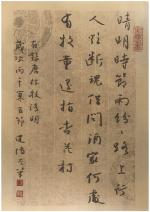 清明時節雨紛〻路上行
人欲斷魂借問酒家何處
有牧童遙指杏花村
唐杜牧清明
歲次丙午